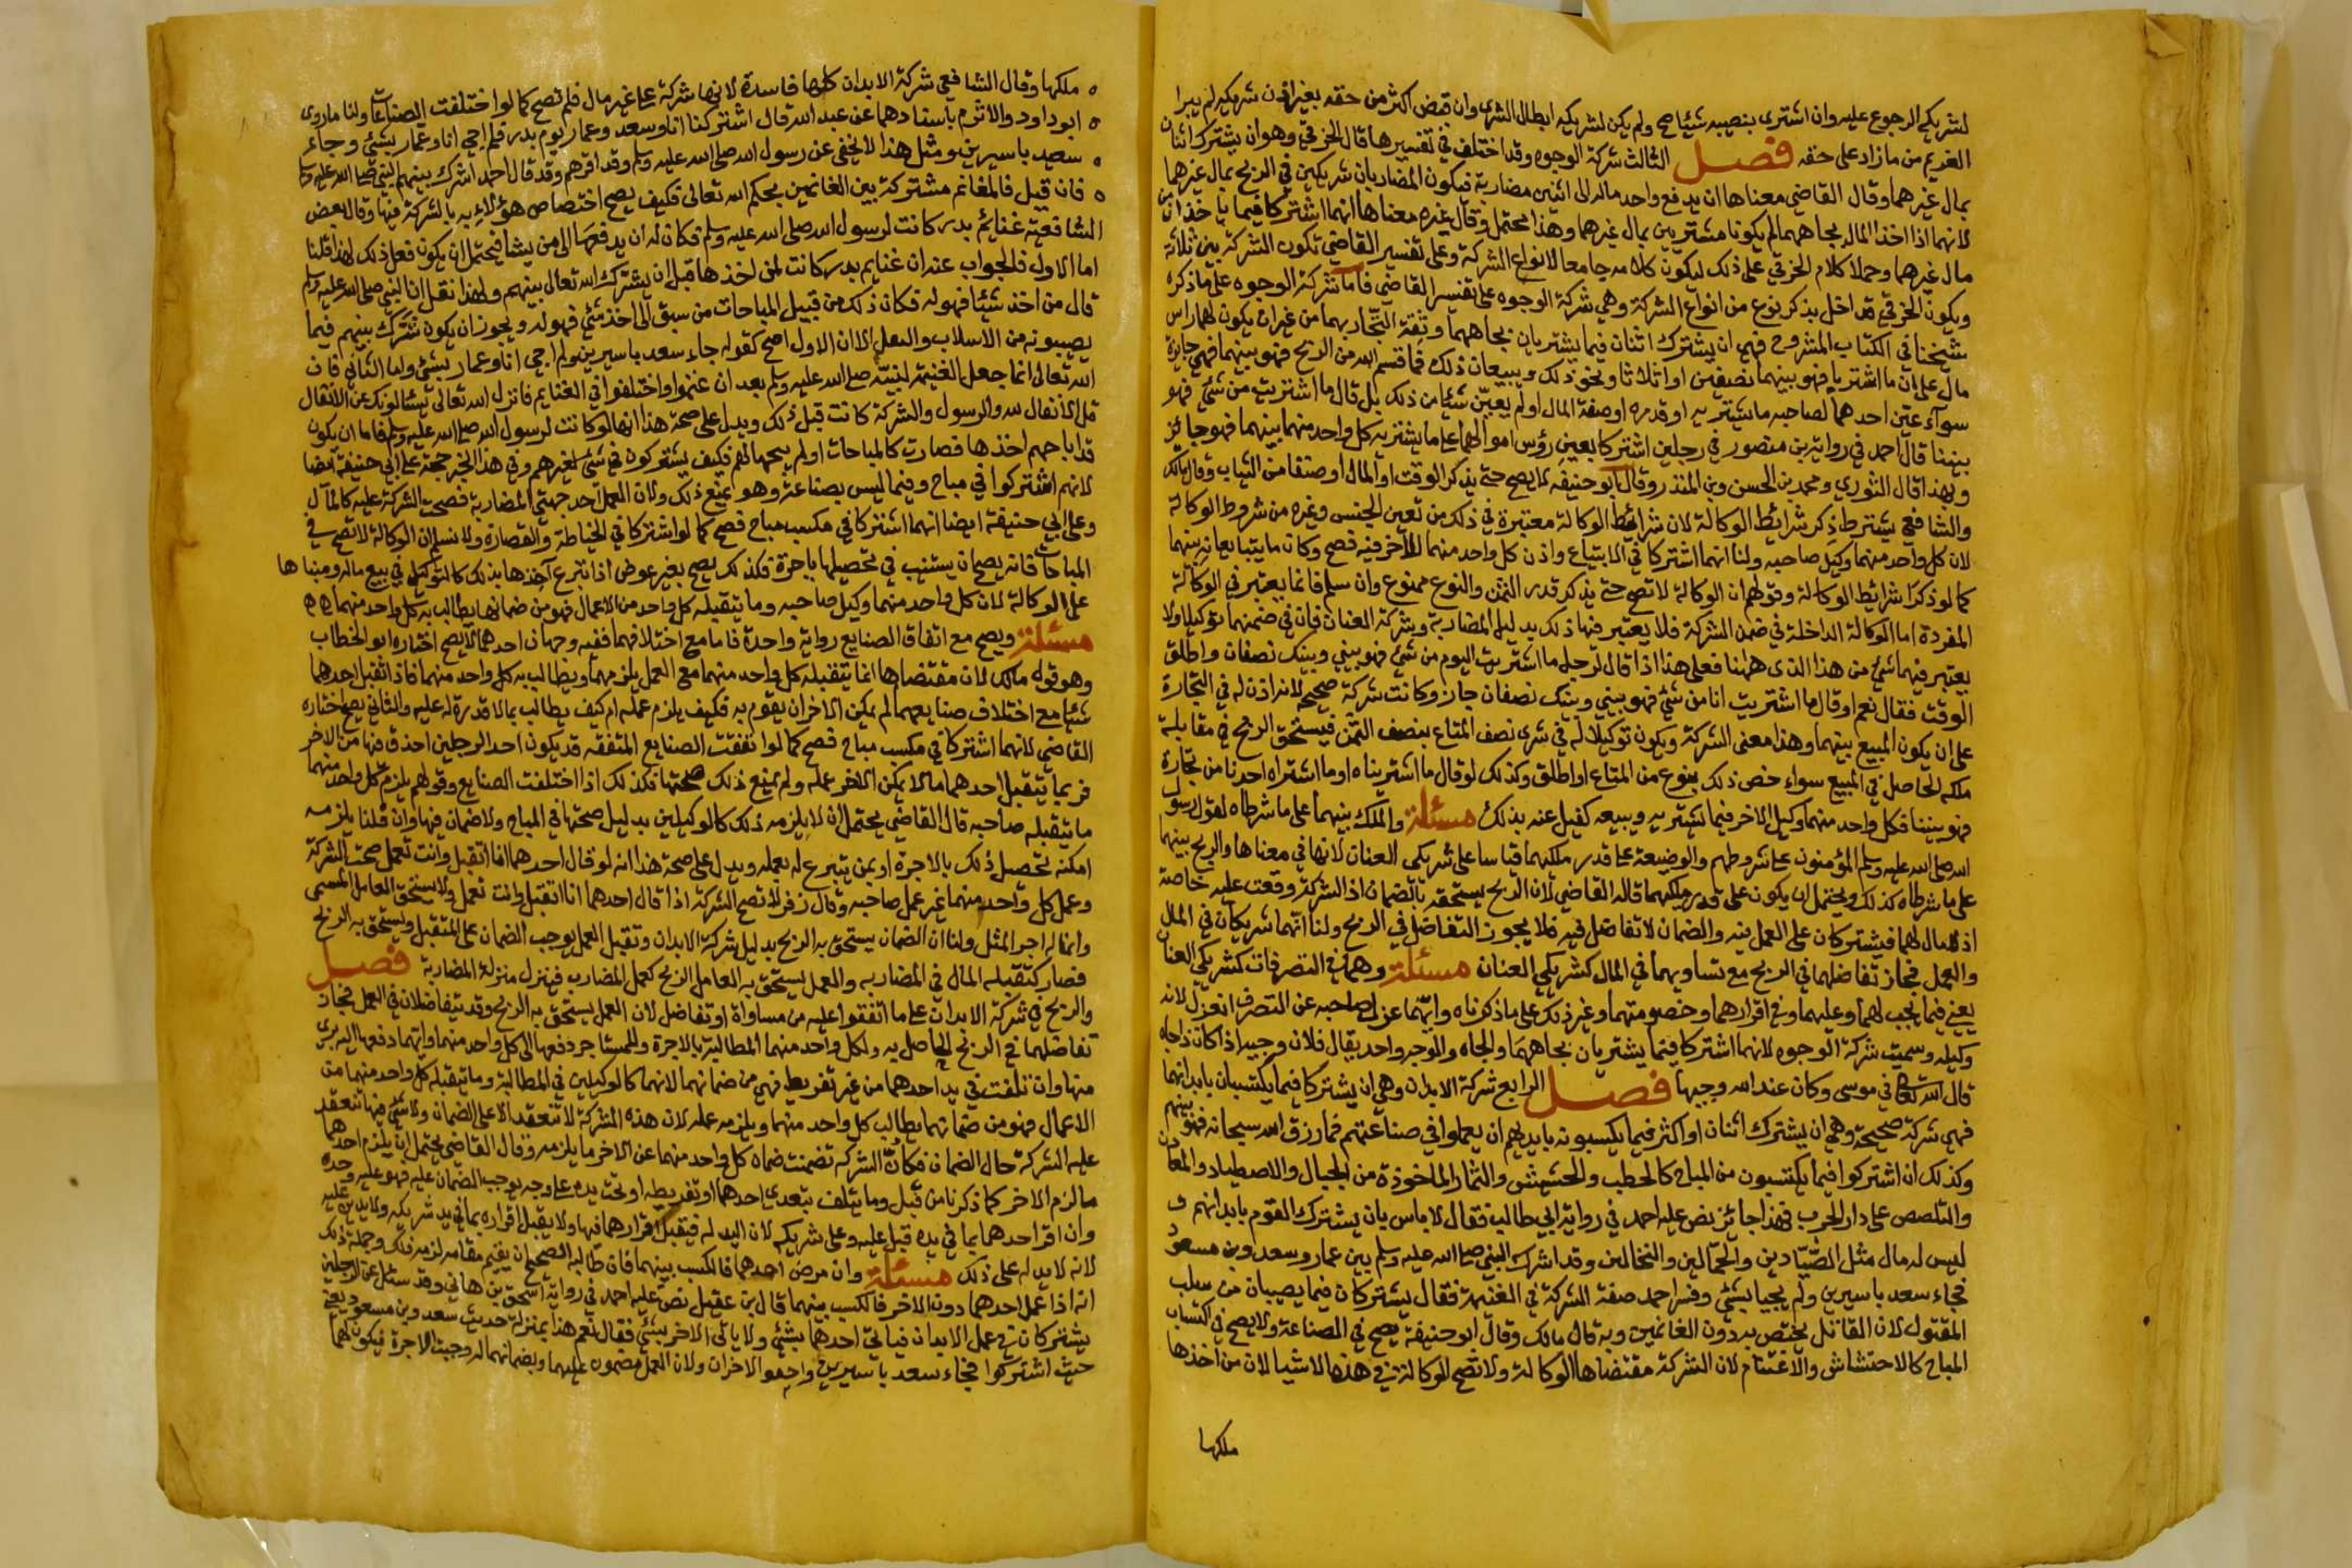 لشريكه الرجوع عليه وان اشترى بنصيبه شيئا صح ولم يكن لشريكه ابطال الشرى وان قبض اكثر من حقه بغير اذن شريكه لم يبرا
الغريم من ما زاد على حقه فصل الثالث شركة الوجوه وقد اختلف في تفسيرها قال الخرقي وهو ان يشترك اثنان
بمال غيرهما وقال القاضي معناها ان يدفع واحد ماله الى اثنين مضاربة فيكون المضاربان شريكين في الربح بمال غيرهما
لانهما اذا اخذا المال بجاههما لم يكونا مشتركين بمال غيرهما وهذا محتمل وقال غيره معناها انهما اشتركا فيما ياخذان من
مال غيرهما وحملا كلام الخرقي على ذلك ليكون كلامه جامعا لانواع الشركة وعلى تفسير القاضي تكون الشركة بين ثلاثة
ويكون الخرقي قد اخل بذكر نوع من انواع الشركة وهي شركة الوجوه على تفسير القاضي فاما شركة الوجوه على ما ذكره
شيخنا في الكتاب المشروح فهي ان يشترك اثنان فيما يشتريان بجاههما وثقة التجار بهما من غير ان يكون لهما راس
مال على ان ما اشتريا فهو بينهما نصفين او اثلاثا ونحو ذلك ويبيعان ذلك فما قسم الله من الربح فهو بينهما فهي جايزة
سوآء عيّن احدهما لصاحبه ما يشتريه او قدره او صفة المال او لم يعيّن شيئا من ذلك بل قال ما اشتريت من شئ فهو
بيننا قال احمد في رواية بن منصور في رجلين اشتركا بغير رؤس اموالهما على ما يشتريه كل واحد منهما بينهما فهو جائز
وبهذا قال الثوري ومحمد بن الحسن وبن المنذر وقال ابو حنيفه لا يصح حتى يذكر الوقت او المال او صنفا من الثياب وقال مالك
والشافعي يشترط ذكر شرائط الوكالة لان شرائط الوكالة معتبرة في ذلك من تعين الجنس وغيره من شروط الوكالة
لان كل واحد منهما وكيل صاحبه ولنا انهما اشتركا في الابتياع واذن كل واحد منهما للآخر فيه فصح وكان ما يتبايعانه بينهما
كما لو ذكرا شرائط الوكالة وقولهم ان الوكالة لا تصح حتى يذكر قدر الثمن والنوع ممنوع وان سلم فانما يعتبر في الوكالة
المفردة اما الوكالة الداخلة في ضمن الشركة فلا يعتبر فيها ذلك بدليل المضاربة وشركة العنان فان في ضمنهما توكيلا ولا
يعتبر فيهما شئ من هذا الذى ههنا فعلى هذا اذا قال لرجل ما اشتريت اليوم من شئ فهو بيني وبينك نصفان واطلق
الوقت فقال نعم او قال ما اشتريت انا من شئ فهو بيني وبينك نصفان جاز وكانت شركة صحيحه لانه اذن له في التجارة
على ان يكون المبيع بينهما وهذا معنى الشركة ويكون توكيلا له في شرى نصف المتاع بنصف الثمن فيستحق الربح في مقابلة
ملكه الحاصل في المبيع سواء خص ذلك بنوع من المتاع او اطلق وكذلك لو قال ما اشتريناه او ما اشتراه احدنا من تجارة
فهو بيننا فكل واحد منهما وكيل الاخر فيما يشتريه ويبيعه كفيل عنه بذلك مسئلة والملك بينهما على ما شرطاه لقول رسول
الله صلى الله عليه وسلم المؤمنون على شروطهم والوضيعة على قدر ملكيهما قياسا على شريكي العنان لانها في معناها والربح بينهما
على ما شرطاه كذلك ويحتمل ان يكون على قدر ملكيهما قاله القاضي لان الربح يستحقه بالضمان اذ الشركة وقعت عليه خاصة
اذ لا مال لهما فيشتركان على العمل فيه والضمان لا تفاضل فيه فلا يجوز التفاضل في الربح ولنا انهما شريكان في المال
والعمل فجاز تفاضلهما في الربح مع تساويهما في المال كشريكي العنان مسئلة وهما في التصرفات كشريكي العنان
يعني فيما يجب لهما وعليهما وفي اقرارهما وخصومتهما وغير ذلك على ما ذكرناه وايهما عزل صاحبه عن التصرف انعزل لانه
وكيله وسميت شركة الوجوه لانهما اشتركا فيما يشتريان بجاههما والجاه والوجه واحد يقال فلان وجيه اذا كان ذا جاه
قال الله تعالى في موسى وكان عند الله وجيها فصل الرابع شركة الابدان وهي ان يشتركا فيما يكتسبان بابدانهما
فهي شركة صحيحة وهي ان يشترك اثنان او اكثر فيما يكسبونه بايديهم ان يعملوا في صناعتهم فما رزق الله سبحانه فهو بينهم
وكذلك ان اشتركوا فيما يكتسبون من المباح كالحطب والحشيش والثمار الماخوذة من الجبال والاصطياد والمعادن
والتلصص على دار الحرب فهذا جائز نص عليه احمد في رواية ابي طالب فقال لا باس بان يشترك القوم بابدانهم و
ليس له مال مثل الصيّادين والحمّالين والنخالين وقد اشرك النبي صلى الله عليه وسلم بين عمار وسعد وبن مسعود
فجاء سعد باسيرين ولم يجيا بشئ وفسر احمد صفة الشركة في الغنيمة فقال يشتركان فيما يصيبان من سلب
المقتول لان القاتل يختص به دون الغانمين وبه قال مالك وقال ابو حنيفة يصح في الصناعة ولا يصح في اكتساب
المباح كالاحتشاش والاغتنام لان الشركة مقتضاها الوكالة ولا تصح الوكالة في هذه الاشيا لان من اخذها
ملكها
ملكها وقال الشافعي شركة الابدان كلها فاسدة لانها شركة على غير مال فلم تصح كما لو اختلفت الصناعات ولنا ما روى
ابو داود والاثرم باسنادهما عن عبد الله قال اشتركنا انا وسعد وعمار يوم بدر فلم اجي انا وعمار بشئ وجاء
سعد باسيرين ومثل هذا لا يخفى عن رسول الله صلى الله عليه وسلم وقد اقرهم وقد قال احمد اشرك بينهم النبي صلى الله عليه وسلم
فان قيل فالمغانم مشتركة بين الغانمين بحكم الله تعالى فكيف يصح اختصاص هؤلاء به بالشركة فيها وقال بعض
الشافعية غنائم بدر كانت لرسول الله صلى الله عليه وسلم فكان له ان يدفعها الى من يشا فيحتمل ان يكون فعل ذلك لهذا قلنا
اما الاول فالجواب عنه ان غنايم بدر كانت لمن اخذها قبل ان يشترك الله تعالى بينهم ولهذا نقل ان النبي صلى الله عليه وسلم
قال من اخذ شيئا فهو له فكان ذلك من قبيل المباحات من سبق الى اخذ شئ فهو له ويجوز ان يكون شرّك بينهم فيما
يصيبونه من الاسلاب والنفل الا ان الاول اصح كقوله جاء سعد باسيرين ولم اجى انا وعمار بشئ واما الثاني فان
الله تعالى انما جعل الغنيمة لنبيّه صلى الله عليه وسلم بعد ان غنموا واختلفوا في الغنايم فانزل الله تعالى يسئالونك عن الانفال
قل الانفال لله والرسول والشركة كانت قبل ذلك ويدل على صحة هذا انها لو كانت لرسول الله صلى الله عليه وسلم فاما ان يكون
قد اباحهم اخذها فصارت كالمباحات او لم يبحها لهم فكيف يشتركون في شئ لغيرهم وفي هذا الخبر حجة على ابي حنيفة ايضا
لانهم اشتركوا في مباح وفيما ليس بصناعة وهو يمنع ذلك ولان العمل احد جهتي المضاربة فصحت الشركة عليه كالمآل
وعلى ابي حنيفة ايضا انهما اشتركا في مكسب مباح فصح كما لو اشتركا في الخياطة والقصارة ولا نسلم ان الوكالة لا تصح في
المباحات فانه يصح ان يستنيب في تحصيلها باجرة فكذلك يصح بغير عوض اذا تبرع آخذها بذلك كالتوكيل في بيع ماله ومبناها
على الوكالة لان كل واحد منهما وكيل صاحبه وما يتقبله كل واحد من الاعمال فهو من ضمانها يطالب به كل واحد منهما
مسئلة ويصح مع اتفاق الصنايع رواية واحدة فاما مع اختلافهما ففيه وجهان احدهما لا يصح اختاره ابو الخطاب
وهو قول مالك لان مقتضاها انما يتقبله كل واحد منهما مع العمل يلزمهما ويطالب به كل واحد منهما فاذا تقبل احدهما
شيئا مع اختلاف صنايعهما لم يمكن الاخر ان يقوم به فكيف يلزم عمله ام كيف يطالب بما لا قدرة له عليه والثاني يصح اختاره
القاضي لانهما اشتركا في مكسب مباح فصح كما لو اتفقت الصنايع المتفقه قد يكون احد الرجلين احذق فيها من الاخر
فربما يتقبل احدهما ما لا يمكن الاخر عمله ولم يمنع ذلك صحتها فكذلك اذا اختلفت الصنايع وقولهم يلزم كل واحد منهما
ما يتقبله صاحبه قال القاضي يحتمل ان لا يلزمه ذلك كالوكيلين بدليل صحتها في المباح ولا ضمان فيها وان قلنا يلزمه
امكنه تحصيل ذلك بالاجرة او بمن يتبرع له بعمله ويدل على صحة هذا انه لو قال احدهما انا اتقبل وانت تعمل صحت الشركة
وعمل كل واحد منهما غير عمل صاحبه وقال زفر لا تصح الشركة اذا قال احدهما انا اتقبل وانت تعمل ولا يستحق العامل المسمى
وانما له اجر المثل ولنا ان الضمان يستحق به الربح بدليل شركة الابدان وتقبل العمل يوجب الضمان على المتقبل ويستحق به الربح
فصار كتقبله المال في المضاربه والعمل يستحق به العامل الربح كعمل المضارب فينزل منزلة المضاربة فصل
والربح في شركة الابدان على ما اتفقوا عليه من مساواة او تفاضل لان العمل يستحق به الربح وقد يتفاضلان في العمل فجاز
تفاضلهما في الربح الحاصل به ولكل واحد منهما المطالبة بالاجرة وللمستاجر دفعها الى كل واحد منهما وايهما دفعها اليه برى
منها وان تلفت في يد احدهما من غير تفريط فهي من ضمانهما لانهما كالوكيلين في المطالبة وما يتقبله كل واحد منهما من
الاعمال فهو من ضمانهما يطالب كل واحد منهما ويلزمه عمله لان هذه الشركة لا تنعقد الا على الضمان ولا شئ فيها تنعقد
عليه الشركة حال الضمان فكانّ الشركه تضمنت ضمان كل واحد منهما عن الاخر ما يلزمه وقال القاضي يحتمل ان لا يلزم احدهما
ما لزم الاخر كما ذكرنا من قبل وما يتلف بتعدي احدهما او تفريطه او تحت يده على وجه يوجب الضمان عليه فهو عليه وحده
وان اقر احدهما بما في يده قبل عليه وعلى شريكه لان اليد له فيقبل اقراره بما فيها ولا يقبل اقراره بما في يد شريكه ولا بدين عليه
لانه لا يد له على ذلك مسئلة وان مرض احدهما فالكسب بينهما فان طالبه الصحيح ان يقيم مقامه لزمه ذلك وجملة ذلك
انه اذا عمل احدهما دون الاخر فالكسب بينهما قال بن عقيل نص عليه احمد في رواية اسحق بن هاني وقد سئل عن الرجلين
يشتركان في عمل الابدان فياتي احدهما بشئ ولا ياتي الاخر بشئ فقال نعم هذا بمنزلة حديث سعد وبن مسعود يعني
حيث اشتركوا فجاء سعد باسيرين واخفق الاخران ولان العمل مضمون عليهما وبضمانهما له وجبت الاجرة فيكون لهما